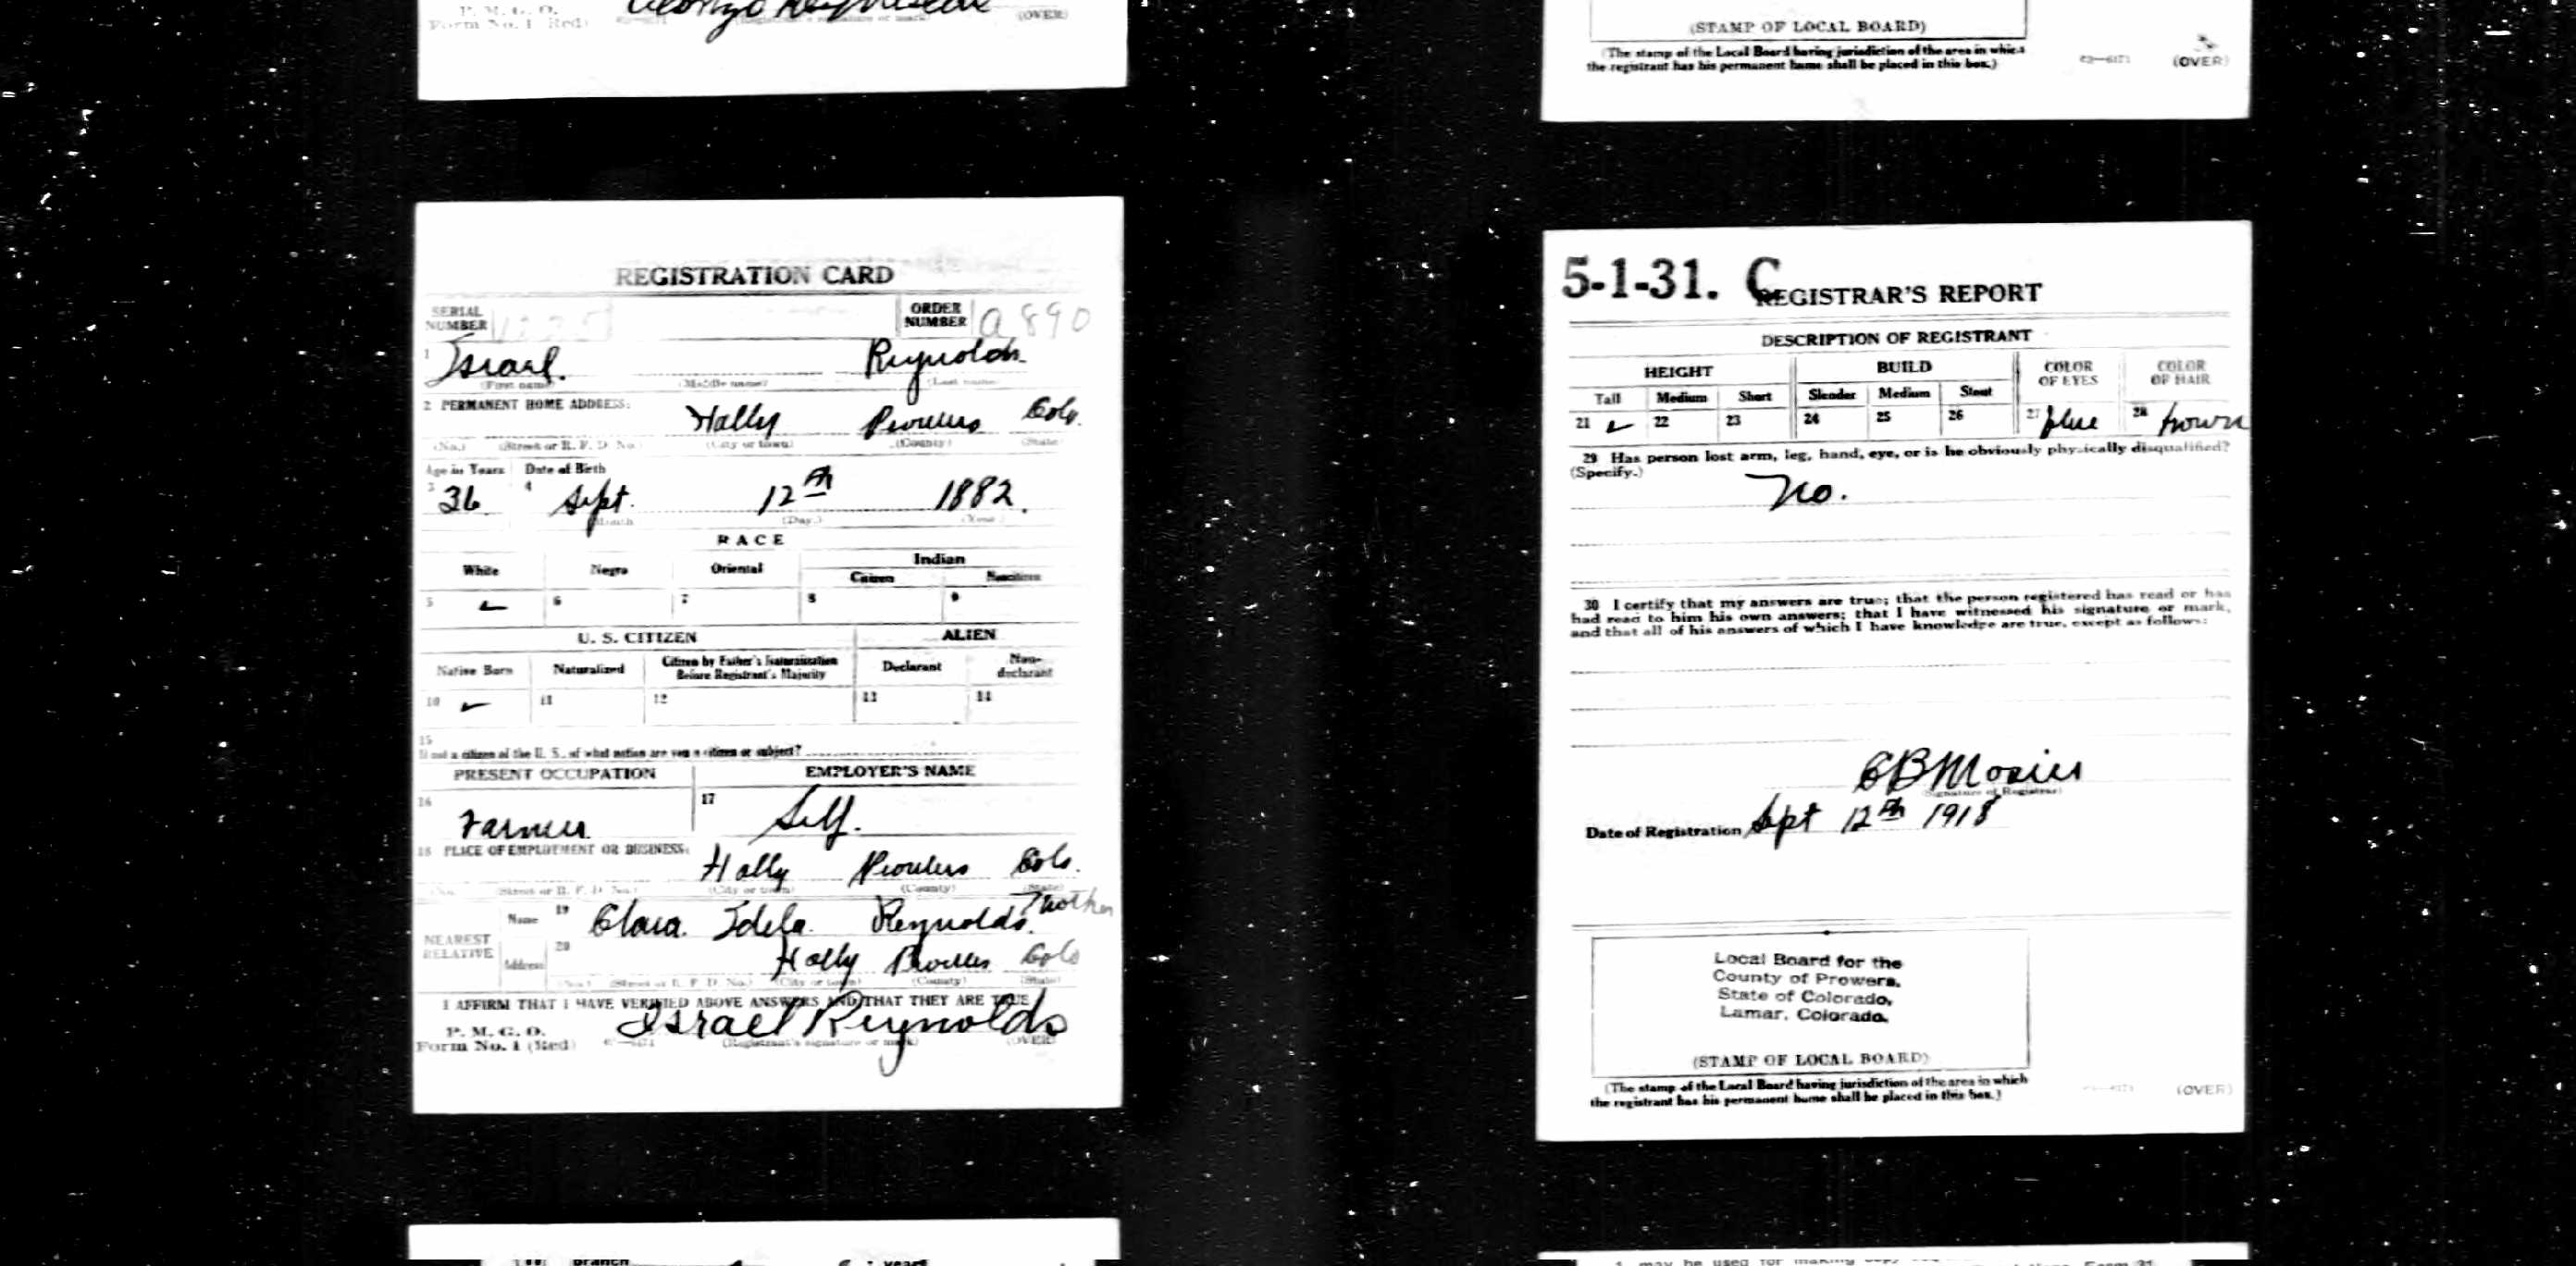 P. M. G. O.
Form No. 1 (Red) (Registrant's signature or mark) (OVER)
(STAMP OF LOCAL BOARD)
(The stamp of the Local Board having jurisdiction of the area in which
the registrant has his permanent home shall be placed in this box.)
63-6171 (OVER)
REGISTRATION CARD
SERIAL NUMBER ORDER NUMBER A 890
1 Israel. Reynolds
(First name) (Middle name) (Last name)
2 PERMANENT HOME ADDRESS:
Holly Prowers Colo.
(No.) (Street or R. F. D. No.) (City or town) (County) (State)
Age in Years Date of Birth
3 36 4 Sept. 12th 1882.
(Month) (Day.) (Year.)
RACE
White Negro Oriental Indian
Citizen Noncitizen
5 ✓ 6 7 8 9
U. S. CITIZEN ALIEN
Native Born Naturalized Citizen by Father's Naturalization Before Registrant's Majority Declarant Non-declarant
10 ✓ 11 12 13 14
15
If not a citizen of the U. S., of what nation are you a citizen or subject?
PRESENT OCCUPATION EMPLOYER'S NAME
16 Farmer 17 Self.
18 PLACE OF EMPLOYMENT OR BUSINESS:
Holly Prowers Colo.
(No.) (Street or R. F. D. No.) (City or town) (County) (State)
NEAREST RELATIVE Name 19 Clara Idela Reynolds. Mother
Address 20 Holly Prowers Colo
(No.) (Street or R. F. D. No.) (City or town) (County) (State)
I AFFIRM THAT I HAVE VERIFIED ABOVE ANSWERS AND THAT THEY ARE TRUE
P. M. G. O.
Form No. 1 (Red) 63-6171 Israel Reynolds
(Registrant's signature or mark) (OVER)
5-1-31. C
REGISTRAR'S REPORT
DESCRIPTION OF REGISTRANT
HEIGHT BUILD COLOR OF EYES COLOR OF HAIR
Tall Medium Short Slender Medium Stout
21 ✓ 22 23 24 25 26 27 blue 28 brown
29 Has person lost arm, leg, hand, eye, or is he obviously physically disqualified?
(Specify.)
No.
30 I certify that my answers are true; that the person registered has read or has
had read to him his own answers; that I have witnessed his signature or mark,
and that all of his answers of which I have knowledge are true, except as follows:
E B Mosier
(Signature of Registrar)
Date of Registration Sept 12th 1918
Local Board for the
County of Prowers,
State of Colorado,
Lamar, Colorado.
(STAMP OF LOCAL BOARD)
(The stamp of the Local Board having jurisdiction of the area in which
the registrant has his permanent home shall be placed in this box.)
(OVER)